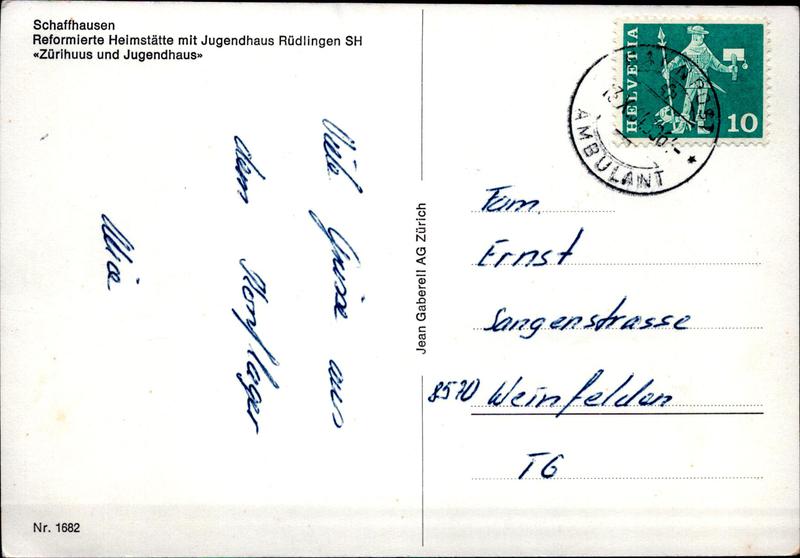 Schaffhausen
Reformierte Heimstätte mit Jugendhaus Rüdlingen SH
«Zürihuus und Jugendhaus»
Viele Grüsse aus
dem Konflager
Jean Gaberell AG Zürich
HELVETIA
10
AMBULANT
Fam.
Ernst
Sangenstrasse
8570 Weinfelden
TG
Nr. 1682